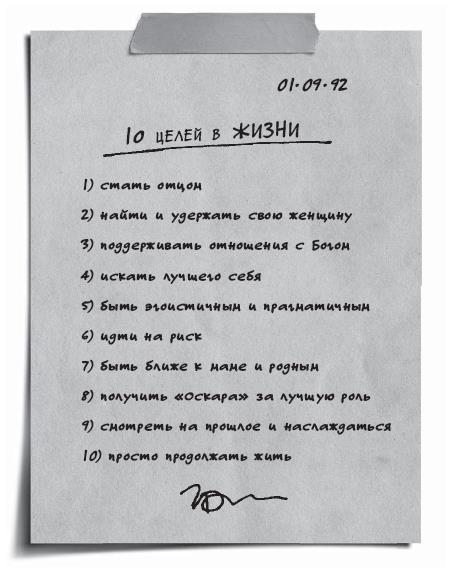 01·09·92
10 ЦЕЛЕЙ В ЖИЗНИ
1) стать отцом
2) найти и удержать свою женщину
3) поддерживать отношения с Богом
4) искать лучшего себя
5) быть эгоистичным и прагматичным
6) идти на риск
7) быть ближе к маме и родным
8) получить «Оскара» за лучшую роль
9) смотреть на прошлое и наслаждаться
10) просто продолжать жить